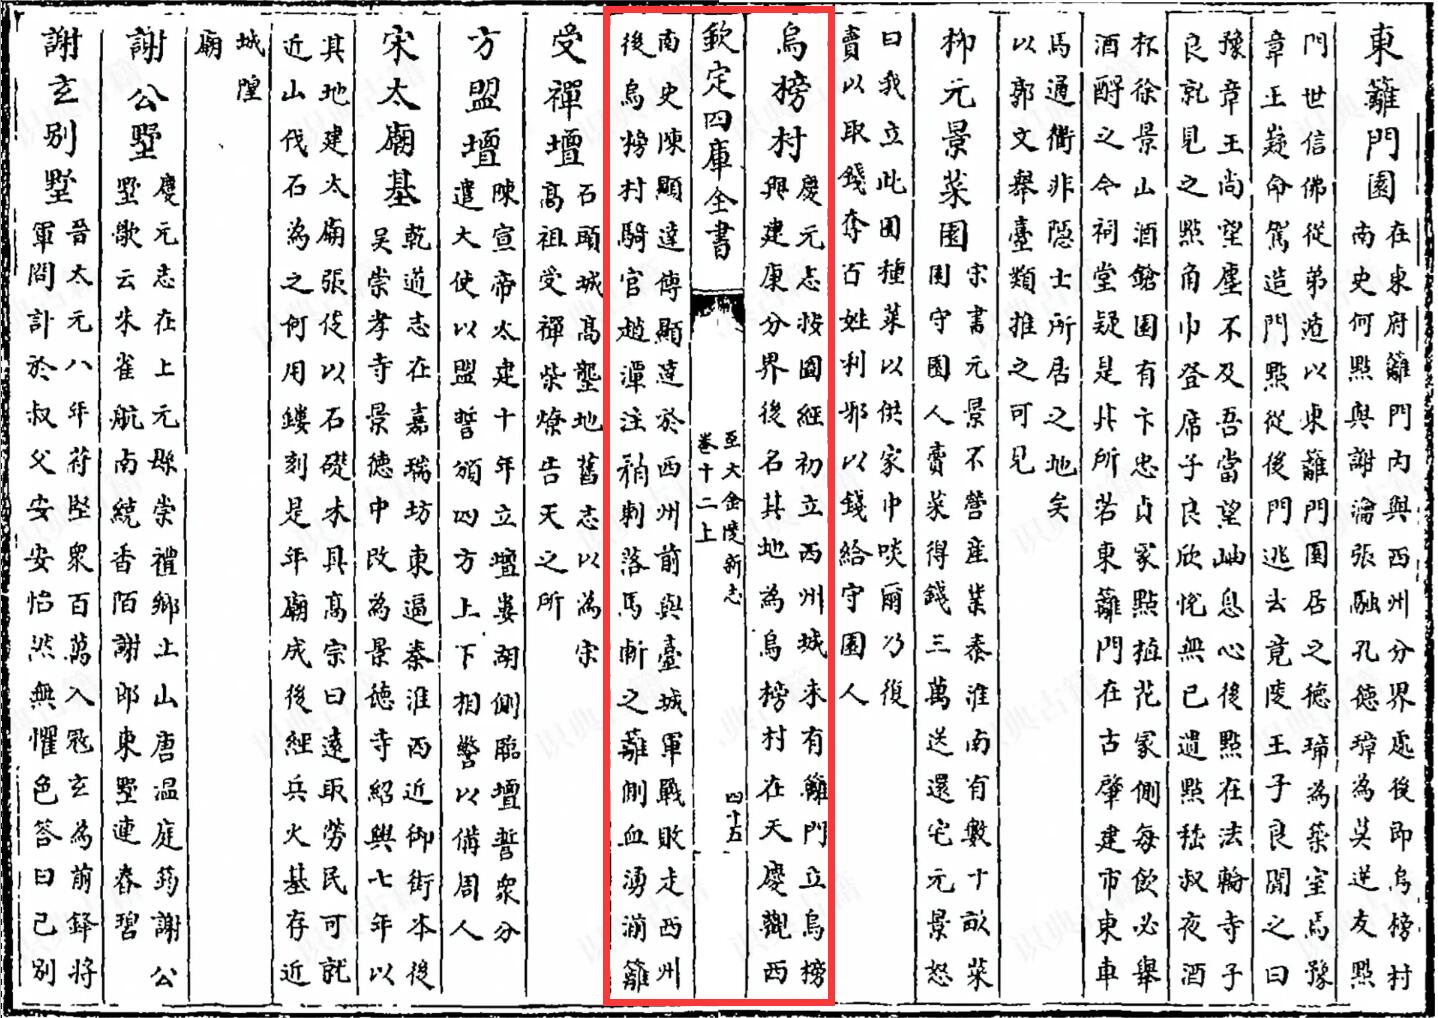 東籬門園
在東府籬門内與西州分界處後即烏榜村
南史何點與謝瀹張融孔德璋為莫逆友點
門世信佛從弟遁以東籬門園居之德璋為築室焉豫
章王嶷命駕造門點從後門逃去竟陵王子良聞之曰
豫章王尚望塵不及吾當望岫息心後點在法輪寺子
良就見之點角巾登席子良欣悅無已遺點嵇叔夜酒
杯徐景山酒鎗園有卞忠貞冡點植花冡側每飲必舉
酒酹之今祠堂疑是其所若東籬門在古肇建市東車
馬通衢非隱士所居之地矣
以郭文舉臺類推之可見
栁元景菜園
宋書元景不營産業秦淮南有數十畝菜
園守園人賣菜得錢三萬送還宅元景怒
曰我立此園種菜以供家中啖爾乃復
賣以取錢奪百姓利邪以錢給守園人
烏榜村
慶元志按圖經初立西州城未有籬門立烏榜
興建康分界後名其地為烏榜村在天慶觀西
欽定四庫全書
至大金陵新志
卷十二上
四十五
南史陳顯達傳顯達於西州前與臺城軍戰敗走西州
後烏榜村騎官趙潭注矟刺落馬斬之籬側血湧湔籬
受禪壇
石頭城髙壟地舊志以為宋
髙祖受禪柴燎告天之所
方盟壇
陳宣帝太建十年立壇婁湖側臨壇誓衆分
遣大使以盟誓頒四方上下相警以備周人
宋太廟基
乾道志在嘉瑞坊東逼秦淮西近御街本後
吳崇孝寺景德中改為景德寺紹興七年以
其地建太廟張俊以石礎未具高宗曰遠取勞民可就
近山伐石為之何用鏤刻是年廟成後經兵火基存近
城隍
廟
謝公墅
慶元志在上元縣崇禮鄉土山唐温庭筠謝公
墅歌云朱雀航南繞香陌謝郎東墅連春碧
謝玄别墅
晉太元八年苻堅衆百萬入冦玄為前鋒將
軍問計於叔父安安怡然無懼色答曰已别
识典古籍